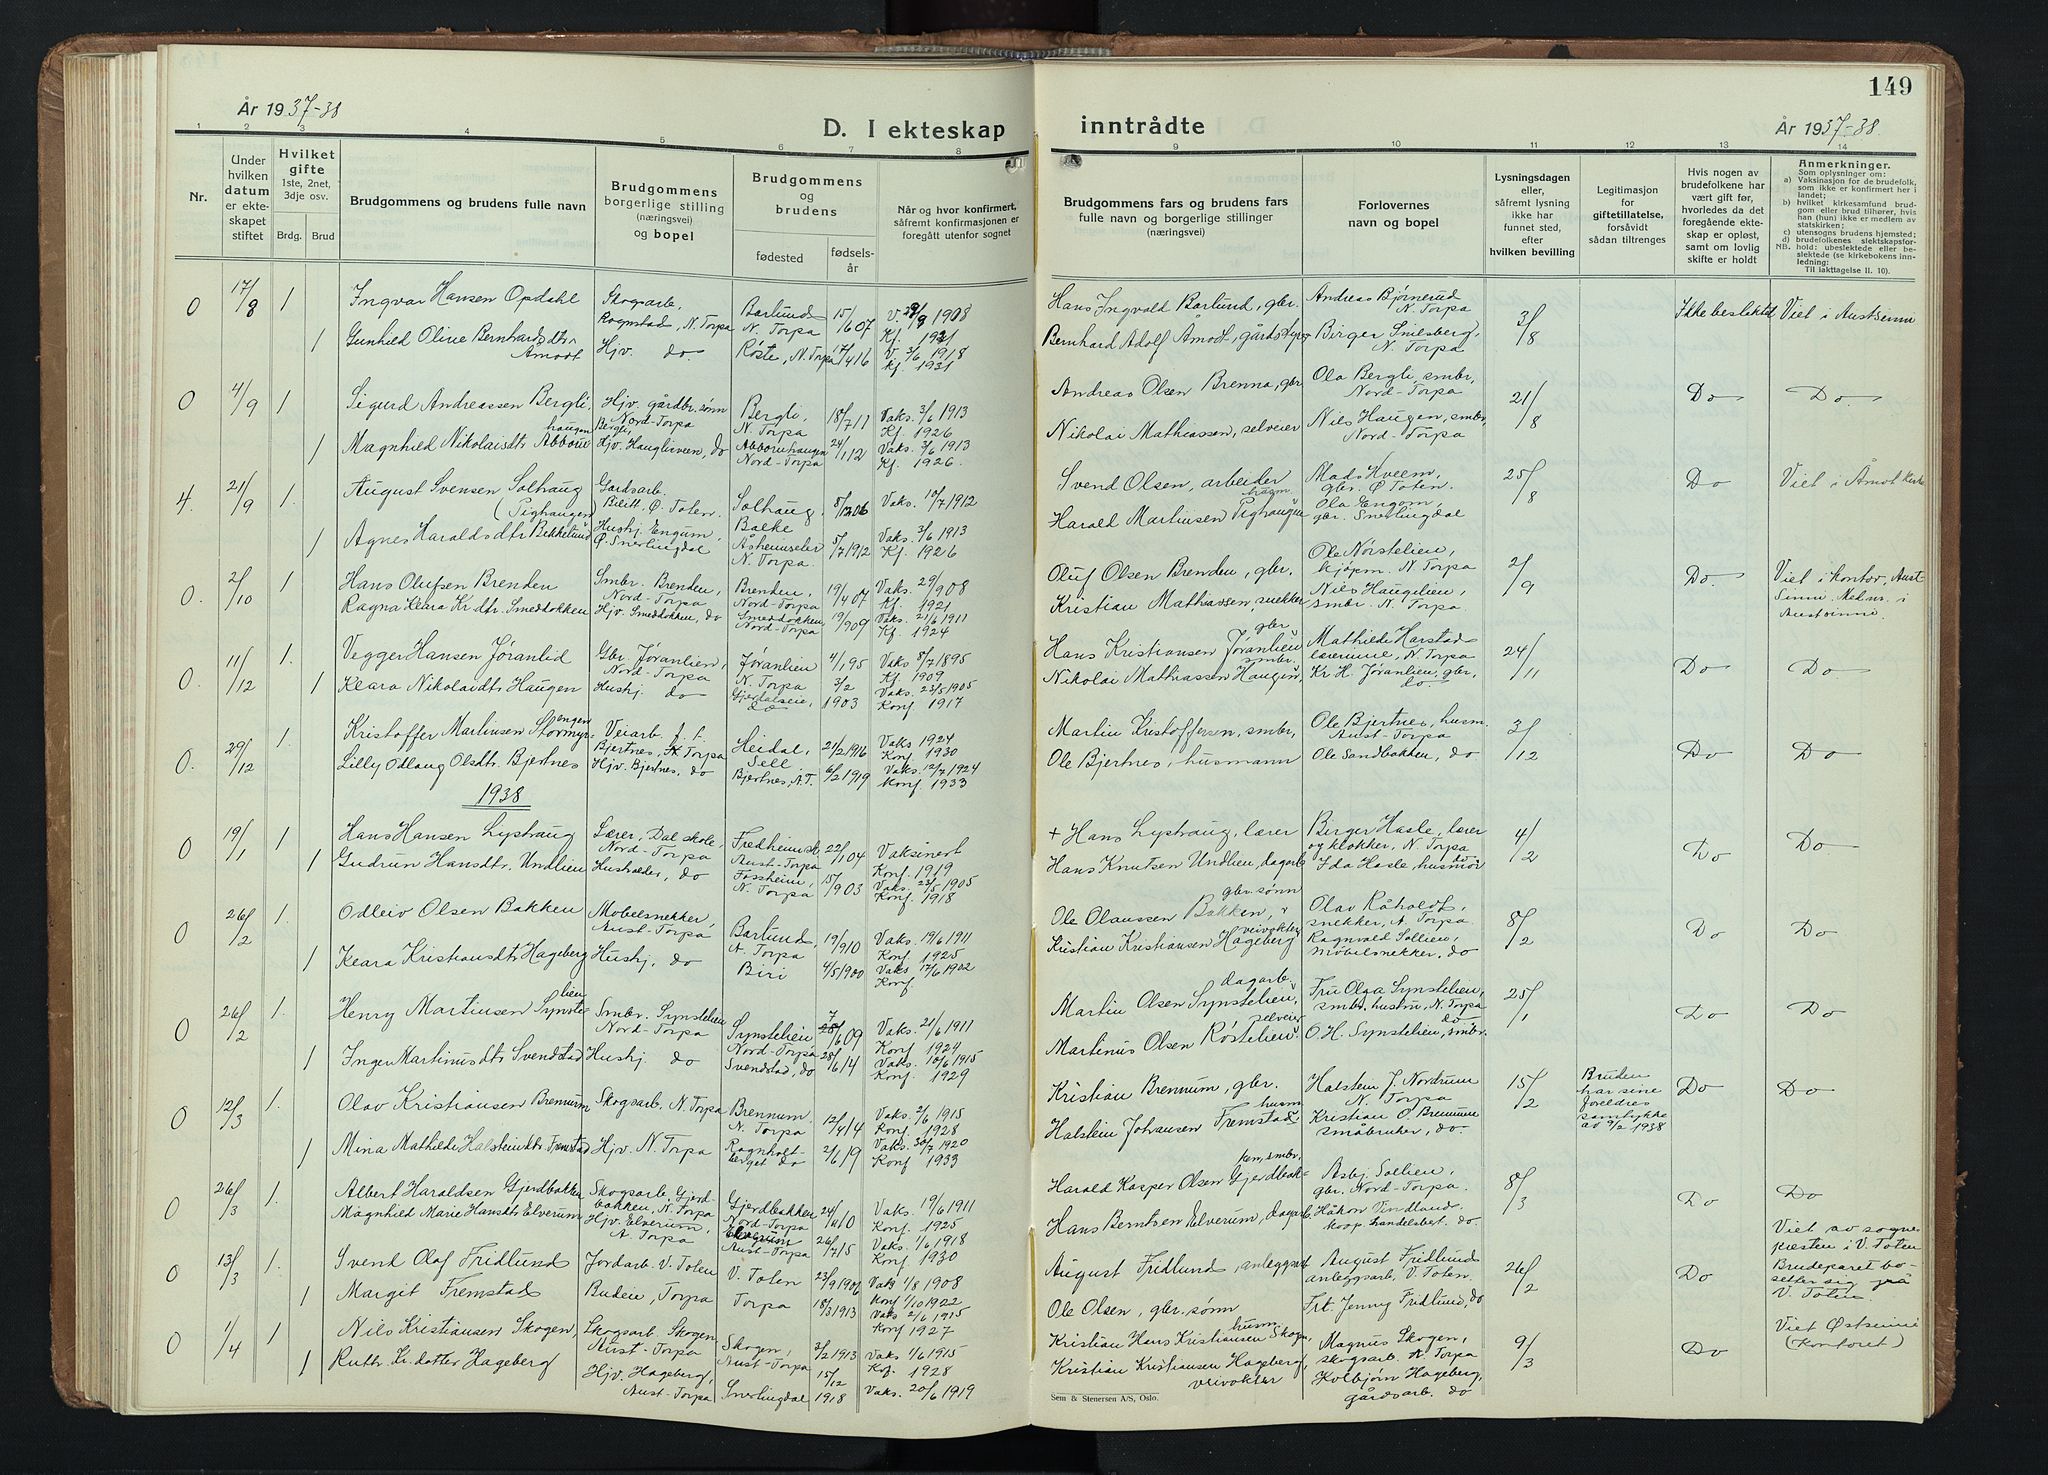 149
År 1937-38
D. I ekteskap
inntrådte
År 1937-38.
1 2 3 4 5 6 7 8
9 10 11 12 13 14
Nr.
Under hvilken datum er ekteskapet stiftet
Hvilket gifte
1ste, 2net, 3dje osv.
Brdg. Brud
Brudgommens og brudens fulle navn
Brudgommens borgerlige stilling (næringsvei) og bopel
Brudgommens og brudens
fødested
fødselsår
Når og hvor konfirmert, såfremt konfirmasjonen er foregått utenfor sognet
Brudgommens fars og brudens fars fulle navn og borgerlige stillinger (næringsvei)
Forlovernes navn og bopel
Lysningsdagen eller, såfremt lysning ikke har funnet sted, efter hvilken bevilling
Legitimasjon for giftetillatelse, forsåvidt sådan tiltrenges
Hvis nogen av brudefolkene har vært gift før, hvorledes da det foregående ekteskap er opløst, samt om lovlig skifte er holdt
Anmerkninger.
Som oplysninger om:
a) Vaksinasjon for de brudefolk, som ikke er konfirmert her i landet;
b) hvilket kirkesamfund brudgom eller brud tilhører, hvis han (hun) ikke er medlem av statskirken;
c) utensogns brudens hjemsted;
d) brudefolkenes slektskapsforhold: ubeslektede eller beslektede (se kirkebokens innledning:
NB. Til iakttagelse II. 10).
0 17/8 1 Ingvar Hansen Opdahl Skogsarb. Rognstad, N. Torpa Barlund N. Torpa 15/6 07 V. 1908 Kf. 1921
Hans Ingvald Barlund, gbr. Andreas Bjørnerud N. Torpa 3/8 Ikke beslektet Viet i Austsinni
1 Gunhild Oline Bernhardsdtr. Åmodt Hjv. do Røste, N. Torpa 17/4 16 V. 3/6 1918 Kf. 1931
Bernhard Adolf Åmodt, Birger Snilsberg, N. Torpa
0 4/9 1 Sigurd Andreassen Bergli, Hjv. gårdbr. sønn Bergli, Nord-Torpa Bergli, N. Torpa 18/7 11 Vaks. 3/6 1913 Kf. 1926
Andreas Olsen Brenna, gbr. Ola Bergli, smbr, Nord-Torpa 21/8 Do Do
1 Magnhild Nikolaisdtr. Abborhaugen Hjv. Haugliveen, do Abborhaugen Nord-Torpa 24/1 12 Vaks. 3/6 1913 Kf. 1926.
Nikolai Mathiassen, selveier Nils Haugen, smbr, Nord-Torpa
4. 21/9 1. August Svensen Solhaug (Pighaugen) Gardsarb. Bilitt Ø. Toten Solhaug, Balke Vaks. 10/7 1912
Svend Olsen, arbeider Mads Hveem, gbr. Ø Toten. 25/8 Do Viet i Åmot kirke
1 Agnes Haraldsdtr Bekkelund Hushj. Engum, Ø. Snertingdal N. Torpa. 5/7 1912 Vaks. 3/6 1913 Kf. 1926
Harald Martinsen Pighaugen husm. Ola Engom, gbr. Snertingdal
0. 2/10 1 Hans Olufsen Brenden Smbr. Brenden, Nord-Torpa Brenden, Nord-Torpa 19/4 07 Vaks. 29/9 08 Kf. 1921
Oluf Olsen Brenden, gbr. Ole Nørstelien, kjøpm. N. Torpa 2/9 Do. Viet i kontor, Aust Sinni. i Austsinni.
Ragna Klara Kr.dtr. Smeddokken Hjv. Smeddokken, do Smeddokken, Nord-Torpa 19/9 09 Vaks. 21/6 1911 Kf. 1924
Kristian Mathiassen, snekker Nils Haugelien, smbr. N. Torpa
0. 11/12 1. Vegger Hansen Jøranlid Gbr. Jøranlien, Nord-Torpa Jøranlien N. Torpa 4/1 95 Vaks 8/7 1895 Kf. 1909
Hans Kristiansen Jøranlien gbr Mathilde Harstad lærerinne, N. Torpa 24/11 Do Do
1 Klara Nikolaidtr Haugen Hushj. do 3/2 1903 Vaks. 23/5 1905 Konf 1917
Nikolai Mathiassen Haugen, smbr. Kr. H. Jøranlien, gbr, do.
0. 29/12 1. Kristoffer Martinsen Stormyrengen Veiarb. Bjertnes, Torpa Heidal, Sell 21/2 1916 Vaks 1924 Konf. 1930
Martin Kristoffersen, smbr, Ole Bjertnes, husm. Aust-Torpa 3/12 Do Do
Lilly Odlaug Olsdtr. Bjertnes Hjv. Bjertnes, do Bjertnes, A.T. 6/2 1919 Vaks. 12/7 1924 Konf. 1933
Ole Bjertnes, husmann Ole Sandbakken, do
1938
0 19/1 1 Hans Hansen Lystraug Lærer, Dal skole, Nord-Torpa Fredheim Aust-Torpa 22/1 04 Vaksinert Konf. 1919
+ Hans Lystraug, lærer Birger Hasle, lærer og klokker, N. Torpa 4/2 Do Do
1 Gudrun Hansdtr. Undlien Husholder, do Fossheim, N. Torpa 15/9 03 Vaks. 23/5 1905 Konf. 1918
Hans Knutsen Undlien, dagarb Ida Hasle, husmor do
0 26/2 1. Odleiv Olsen Bakken Møbelsnekker, Aust-Torpa Barlund, A. Torpa 19/9 10 Vaks. 19/6 1911 Konf. 1925
Ole Olaussen Bakken, gbr. sønn Olav Råholdt, snekker, A. Torpa. 8/2 Do Do
1 Klara Kristiansdtr Hageberg Hushj. do Biri 4/5 1900 Vaks 17/6 1902 Konf.
Kristian Kristiansen Hageberg veivokter Ragnvald Sollien, møbelsnekker, do
0 26/2 1. Henry Martinsen Synstelien Smbr. Synstelien Nord-Torpa Synstelien Nord-Torpa 7/6 09 Vaks. 21/6 1911 Konf 1924
Martin Olsen Synstelien, dagarb. Fru Olga Synstelien, smbr. hustru, N. Torpa 25/1 Do Do
1 Inger Martinusdtr Svendstad Hushj. do Svendstad, do 28/6 14 Vaks. 10/6 1915 Konf. 1929
Martinus Olsen Røstelien selveier O. H. Synstelien, smbr. do
0 12/3 1. Olav Kristiansen Brennum Skogsarb. N. Torpa Brennum N. Torpa 12/4 14 Vaks. 2/6 1915 Konf. 1928
Kristian Brennum, gbr. Halstein J. Nordrum N. Torpa 15/2 Bruden har sine foreldres samtykke av 9/2 1938 Do Do
1 Mina Mathilde Halsteindtr. Fremstad Hjv. N. Torpa Ragnholtberget do 2/6 19 Vaks. 30/7 1920 Konf 1933
Halstein Johansen Fremstad, husm Kristian O. Brennum småbruker, do.
0 26/3 1. Albert Haraldsen Gjerdbakken Skogsarb. Gjerdbakken, N. Torpa Gjerdbakken Nord-Torpa 24/4 10 Vaks. 19/6 1911 Konf. 1925
Harald Kasper Olsen Gjerdbakken, smbr. Asbj. Sollien, gbr. Nord-Torpa. 8/3 Do Do
Magnhild Marie Hansdtr Elverum Hjv. Elverum, A. Torpa Elverum Aust-Torpa 26/7 15 Vaks. 1/6 1918 Konf. 1930
Hans Berntsen Elverum, dagarb. Håkon Vindland. koop. handelsbest. do.
0 13/3 1. Svend Olaf Fridlund Jordarb. V. Toten V. Toten 23/9 1906 Vaks 1/8 1908 Konf 1/10 1922
August Fridlund, anleggsarb August Fridlund anleggsarb, V. Toten. 26/2 Do Viet av sognepresten i V. Toten Brudeparet bosetter sig på V. Toten.
1 Margit Fremstad Budeie, Torpa Torpa 18/3 1913 Vaks 2/6 1915 Konf 1927
Ole Olsen, gbr. sønn Frk. Jenny Fridlund, do
0 1/4 1 Nils Kristiansen Skogen, Skogsarb. Skogen, Aust-Torpa Skogen, Aust-Torpa 3/2 1913 Vaks 1/6 1915 Kof. 1928
Kristian Hans Kristiansen Skogen, husm. Magnus Skogen, skogsarb. A. Torpa 9/3 Do Viet Østsinni (Kontoret)
1 Ruth Kr.datter Hageberg Hjv. Hageberg, Aust-Torpa Snertingdal 15/12 1918 Vaks. 20/6 1919
Kristian Kristiansen Hageberg, veivokter Kolbjørn Hageberg, gårdsarb. do
Sem & Stenersen A/S, Oslo.